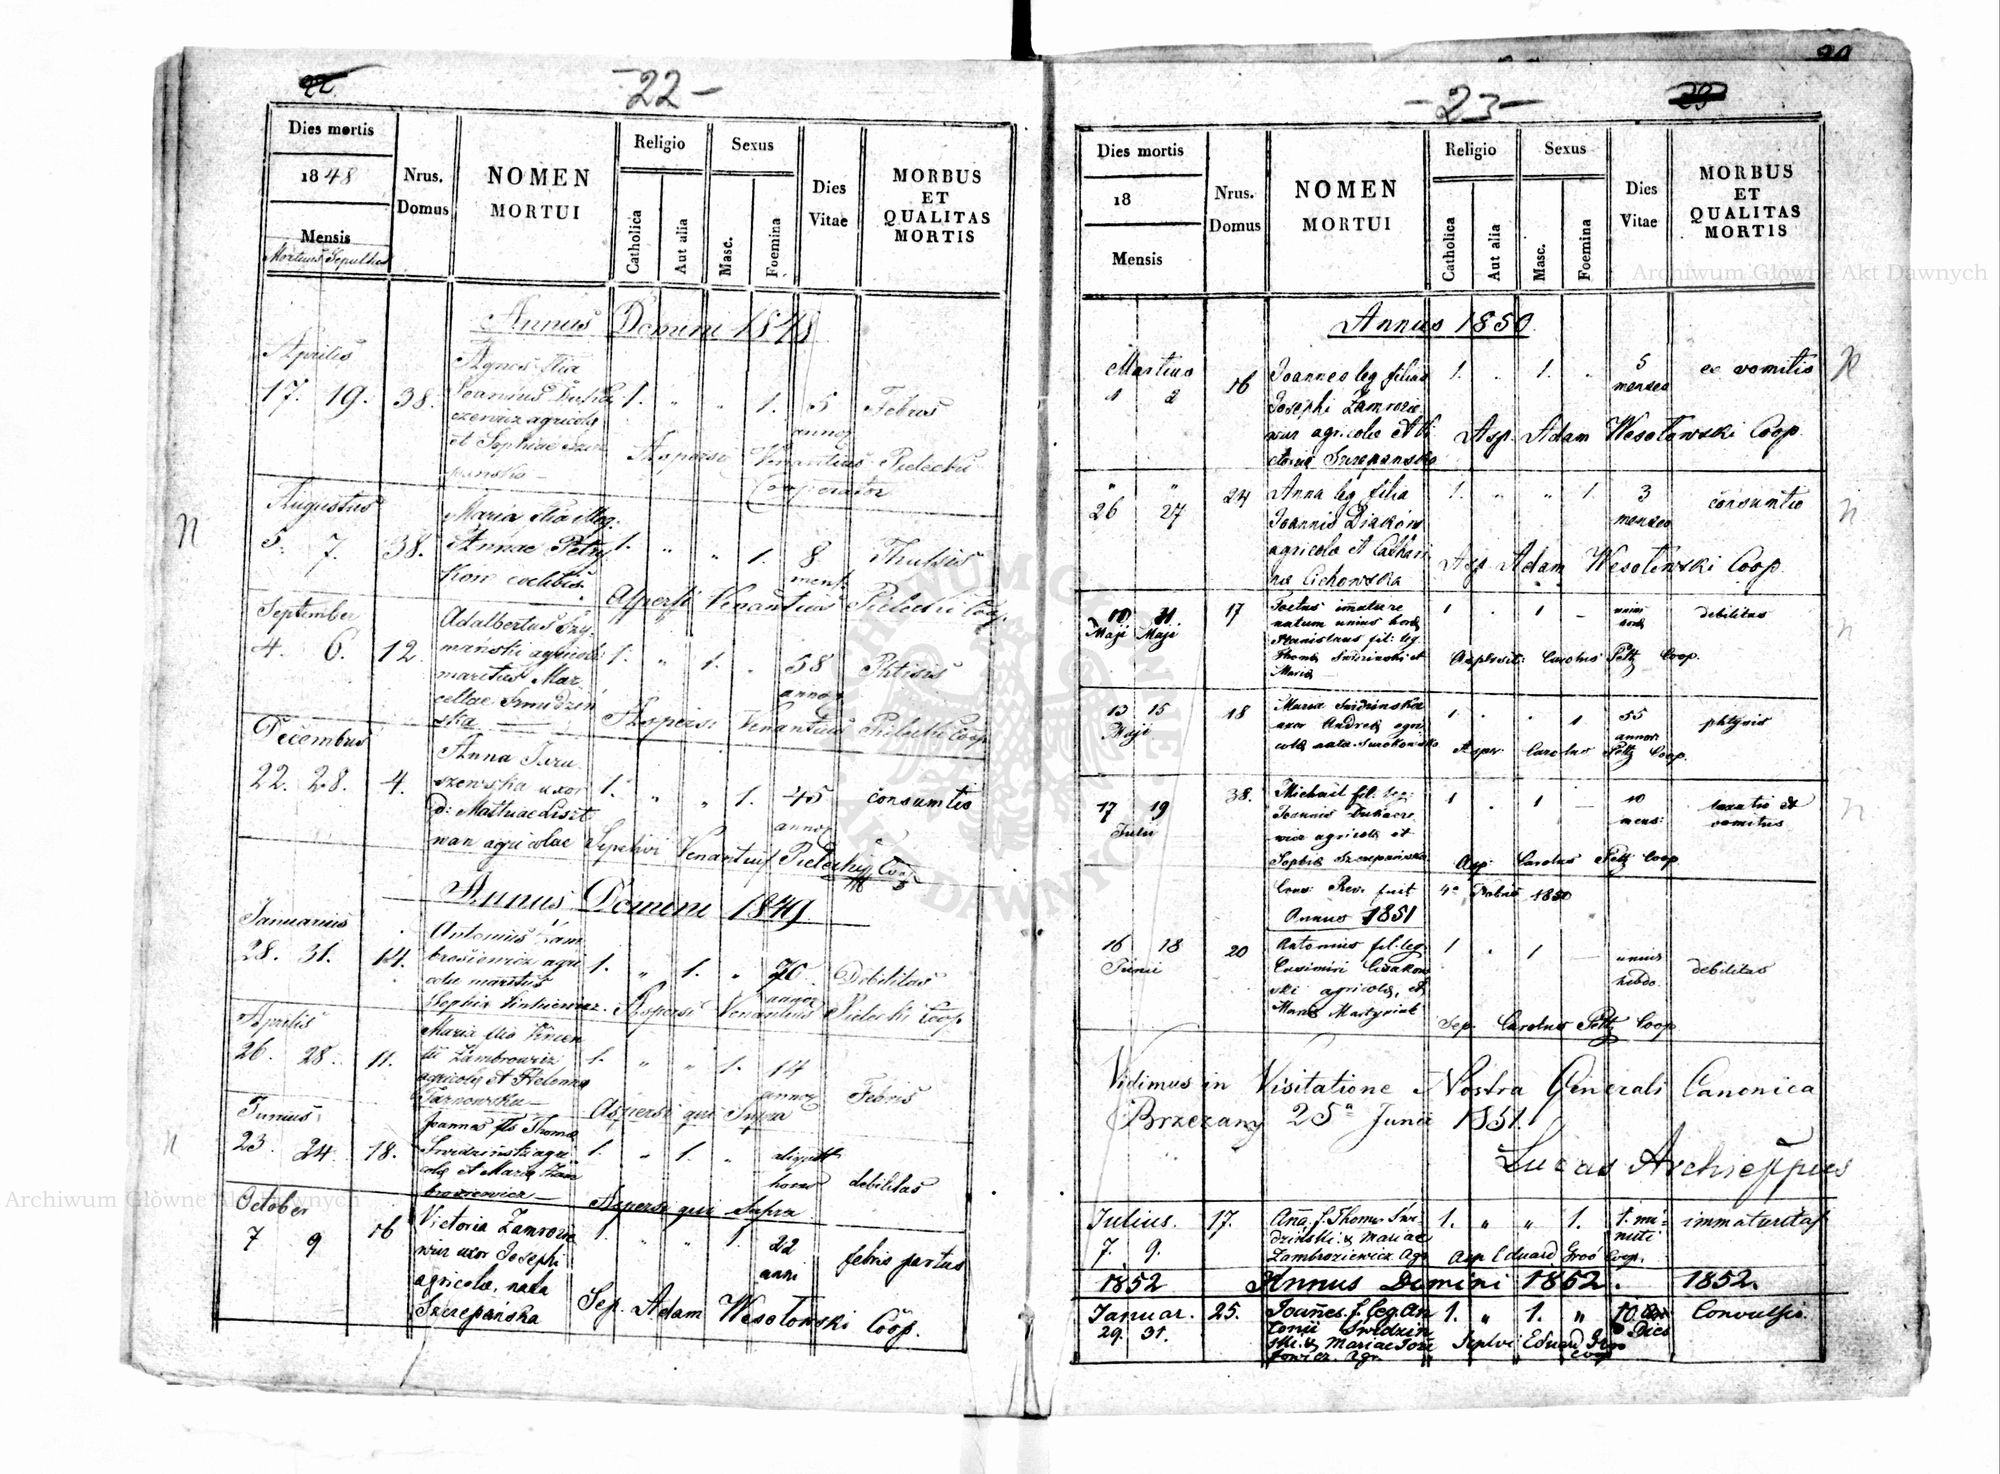 22
-22-
Dies mortis
1848
Mensis
Mortuus Sepultus
Nrus.
Domus
NOMEN
MORTUI
Religio
Catholica
Aut alia
Sexus
Masc.
Foemina
Dies
Vitae
MORBUS
ET
QUALITAS
MORTIS
Annus Domini 1848
Aprilis
17. 19. 38.
Agnes filia
Joannis
agricolae
et Sophiae
1. " " 1. 5
annor
Febris
Aspersi Venantius Pielecki
Cooperator
Augustus
5. 7. 38.
Maria filia illeg.
Annae Petry
kow coelibis.
1. " " 1. 8
mens
Thussis
Aspersi Venantius Pielecki Coop.
September
4. 6. 12.
Adalbertus Szy-
mański agricola
maritus Mar-
cellae
1. " 1. " 58
annor
Phtisis
Aspersi Venantius Pielecki Coop
Decembris
22. 28. 4.
Anna
szewska uxor
d: Mathiae Liszt
wan agricolae
1. " " 1. 45
annor
consumtio
Sepelivi Venantius Pielecki Coop
Annus Domini 1849
Januarius
28. 31. 14.
Antonius Zam
brosiewicz agri
cola maritus
Sophia
1. " 1. " 70
annor
Debilitas
Aspersi Venantius Pielecki Coop
Aprilis
26. 28. 11.
Maria filia Vincen
tii Zambrowicz
agricolae et Helenna
Tarnowska
1. " " 1. 14
annor
Febris
Aspersi qui Supra
Junius
23. 24. 18.
Joannes fils Thomae
Swidzinski agri
colae et Maria Zam
broziewicz
1. " 1. "
horas
debilitas
Aspersi qui Supra
October
7 9 16
Victoria Zamrozie
wicz uxor Josephi
agricolae, nata
Szczepańska
1. " " 1. 22
anni
febris partus
Sep. Adam Wesołowski Coop.
-23-
Dies mortis
18
Mensis
Nrus.
Domus
NOMEN
MORTUI
Religio
Catholica
Aut alia
Sexus
Masc.
Foemina
Dies
Vitae
MORBUS
ET
QUALITAS
MORTIS
Annus 1850.
Martius
1 2 16
Joannes leg filius
Josephi Zamrozie
wicz agricolae et Vi
ctoria Szczepanska
1. " 1. " 5
menses
ex vomitis
Asp. Adam Wesołowski Coop.
" "
26 27 24
Anna leg filia
Joannis Diakón
agricolae et Cathari
nae Cichowska
1. " " 1. 3
menses
consumtio
Asp Adam Wesołowski Coop.
10 31 17
Maji Maji
Foetus immature
natum unius horae
Stanislaus fil: leg
Thomae Swidzinski et
Maria
1 . 1 - unius
horae
debilitas
Aspersit: Carolus Peltz Coop.
13 15 18
Maji
Maria Swidzinska
uxor Andreae agri
colae nata
1. . . 1 55
annor
phtysis
Asper Carolus Peltz Coop.
17 19 38.
Julii
Michael fil: leg:
Joannis Dukacze
wicz agricolae et
Sophia Szczepańska
1 . 1 - 10
mens:
et
vomitus
Asp: Carolus Peltz Coop
Cons: Rev. fuit 4a 1850
Annus 1851
16 18 20
Junii
Antonius fil: leg.
Casimiri
ski agricolae, et
Maria Martyniuk
1 . 1 - unius
hebdo.
debilitas
Sep. Carolus Peltz Coop
Vidimus in Visitatione Nostra Generali Canonica
Brzezany 25a Junii 1851.
Lucas Archieppus
Julius. 17.
7. 9.
Anna f. Thomae Swi-
dziński & Mariae
Zambroziewicz Agr
1. " " 1. 1. mi-
nuti
immaturitas
Asp Eduard Groó Coop.
1852 Annus Domini 1852. 1852.
Januar. 25.
29. 31.
Joannes f. leg. An
tonii Swidzin
ski & Mariae
Agr.
1. " 1. " 10.
Dies
Convulsio.
Seplvi Eduard Groo
Coop
Archiwum Główne Akt Dawnych
Archiwum Główne Akt Dawnych
ARCHIWUM GŁÓWNE AKT DAWNYCH